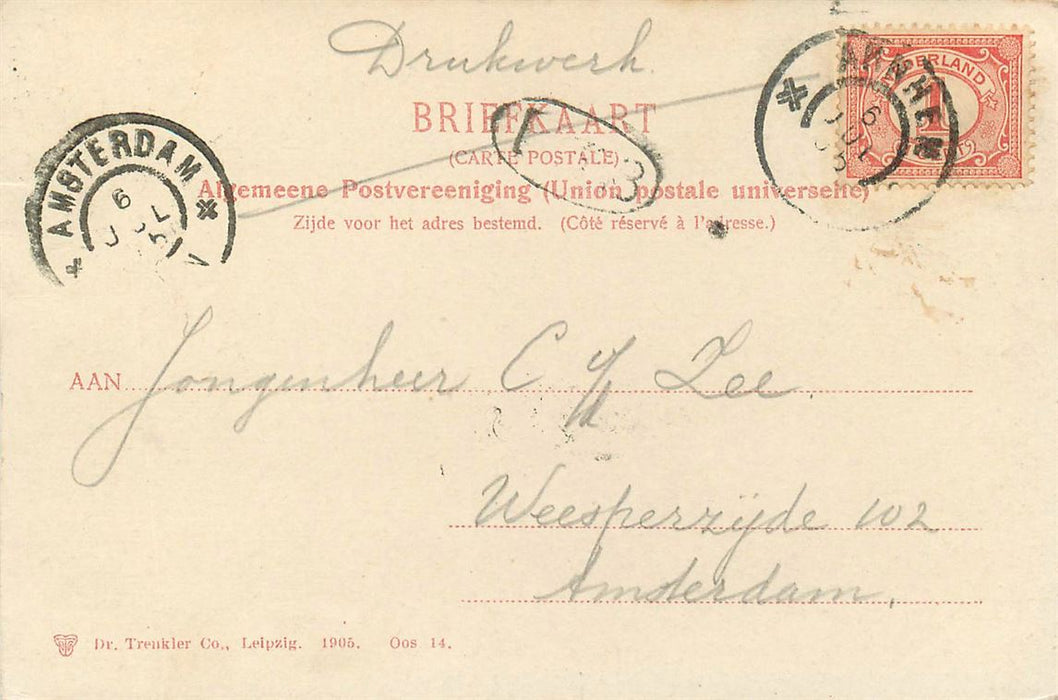 Drukwerk.
BRIEFKAART
(CARTE POSTALE)
Algemeene Postvereeniging (Union postale universelle)
Zijde voor het adres bestemd. (Côté réservé à l'adresse.)
AMSTERDAM
6 JUL
ARNHEM
6 JUL
NEDERLAND
1
AAN Jongenheer C Lee
Weesperzijde 102
Amsterdam.
Dr. Trenkler Co., Leipzig. 1905. Oos 14.